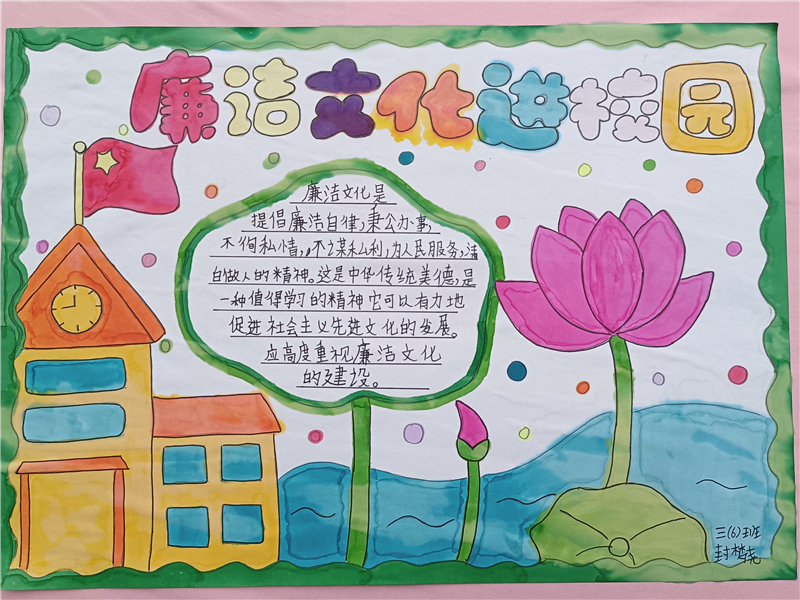 廉洁文化进校园
廉洁文化是
提倡廉洁自律,秉公办事,
不徇私情,不谋私利,为人民服务,清
白做人的精神。这是中华传统美德,是
一种值得学习的精神它可以有力地
促进社会主义先进文化的发展。
应高度重视廉洁文化
的建设。
三(6)班
封梦尧